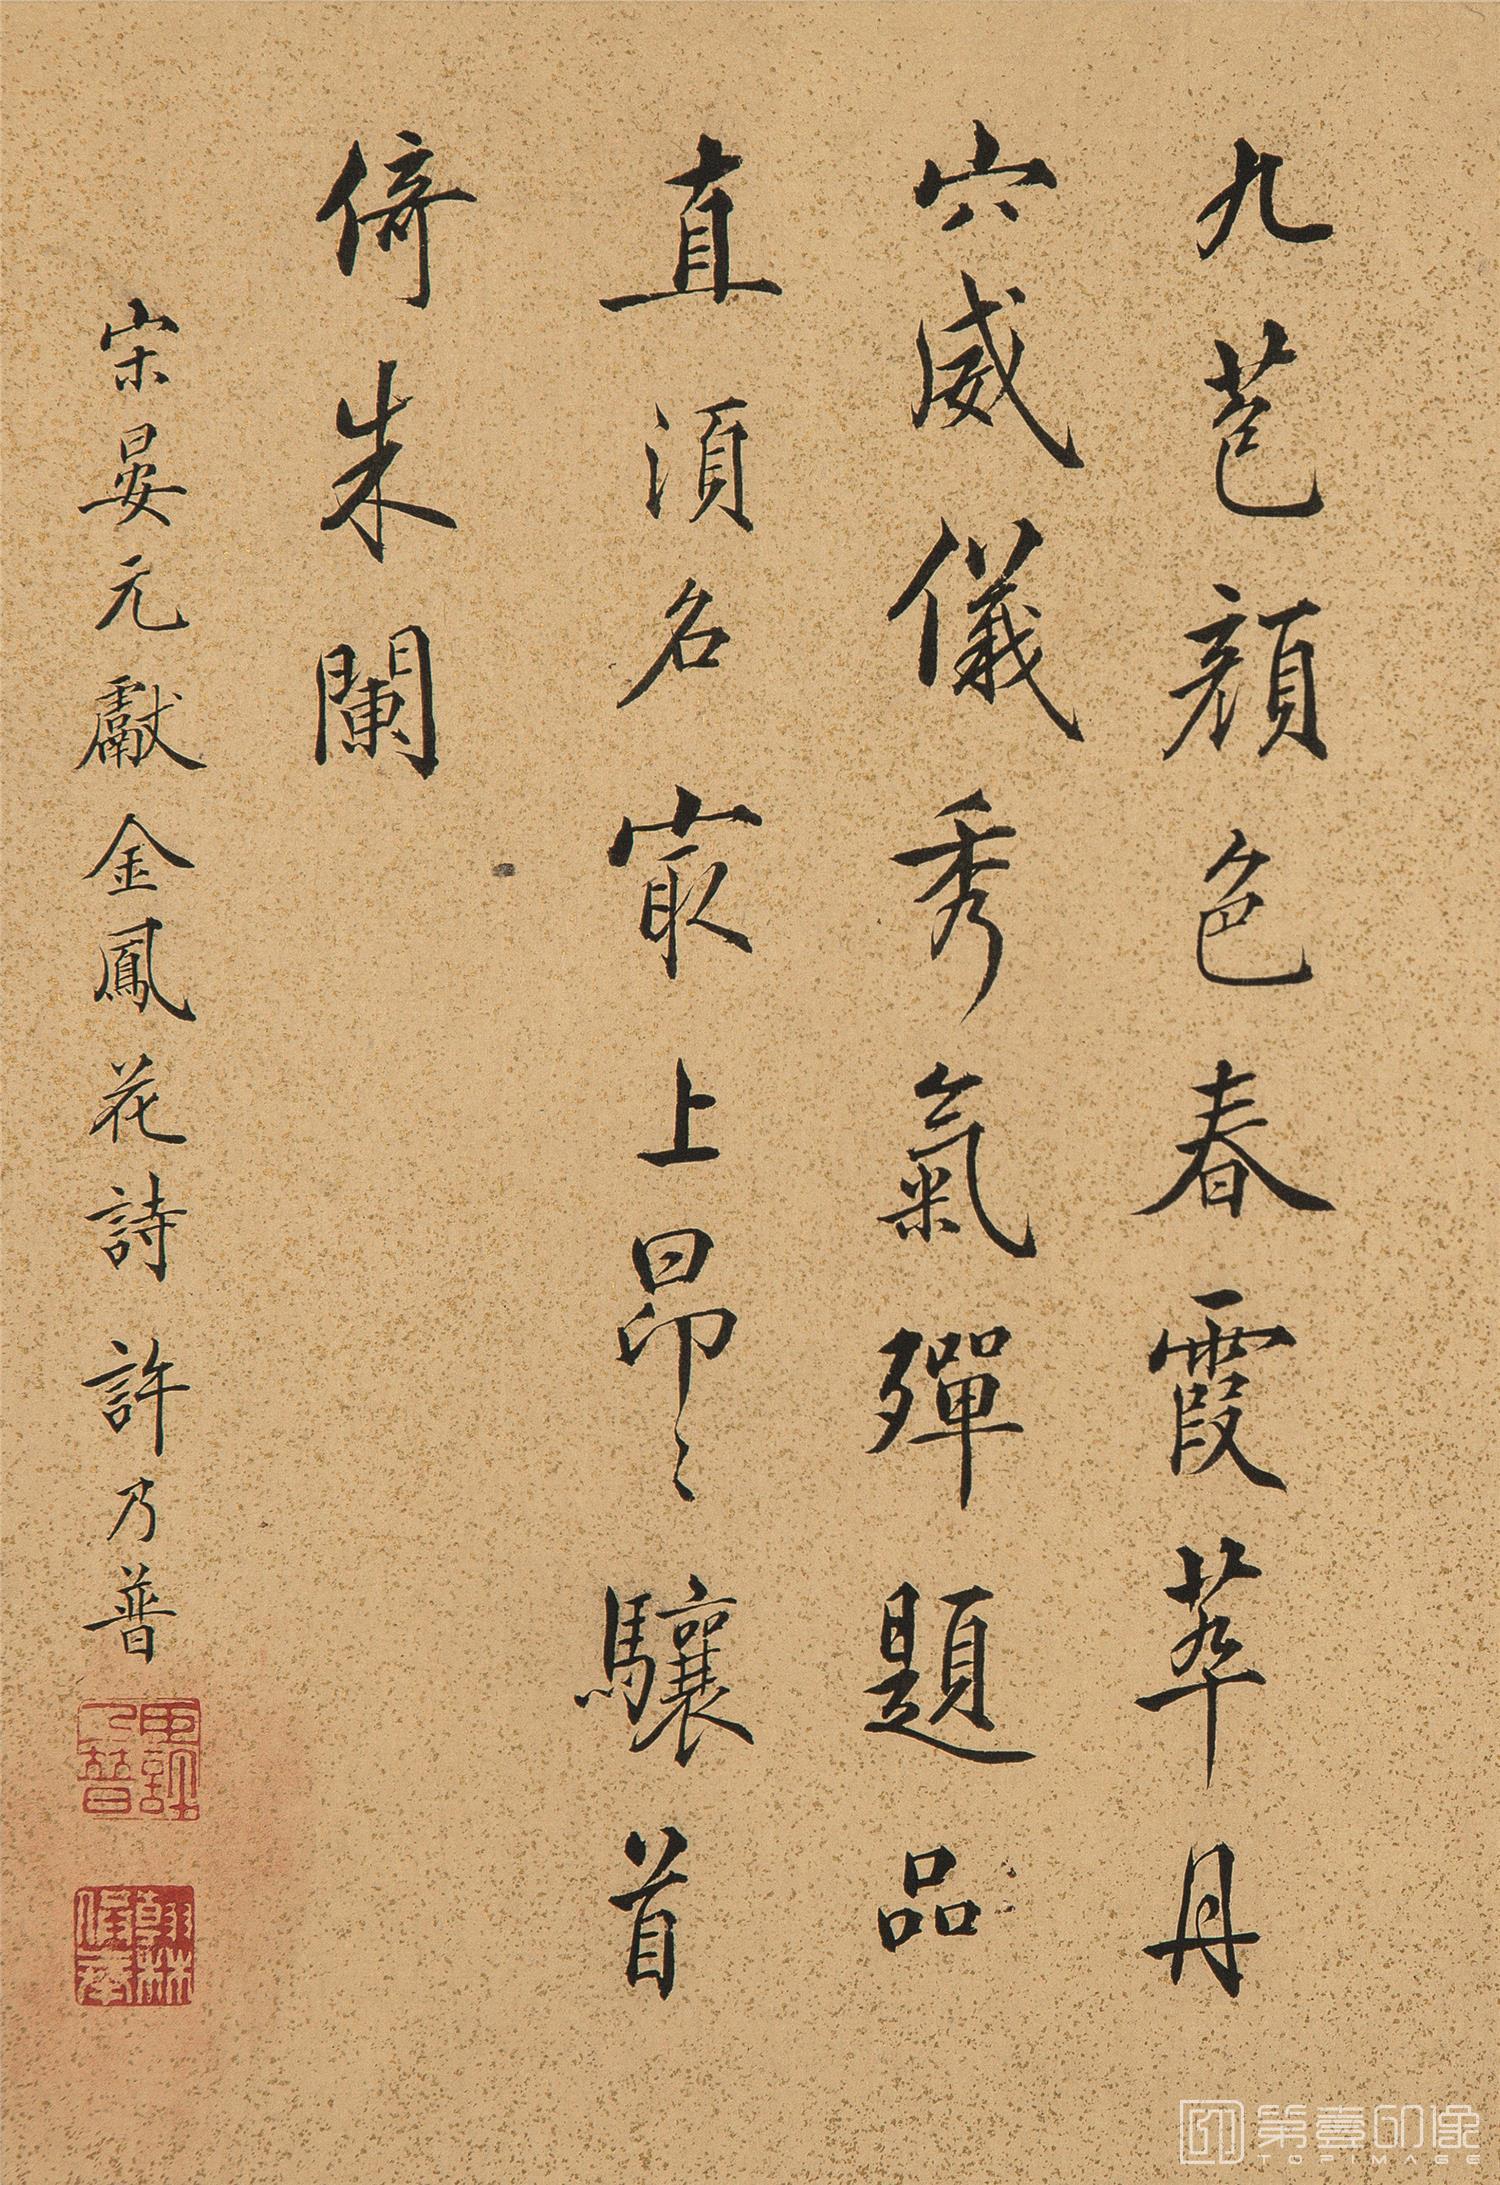 九苞顏色春霞萃丹
穴威儀秀氣殫題品
直須名冣上昂〻驤首
倚朱闌
宋晏元獻金鳳花詩 許乃普
臣許乃普
第壹印像
TOPIMAGE